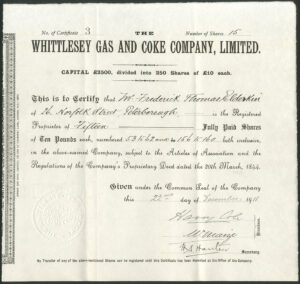 No. of Certificate 3 THE Number of Shares 15
WHITTLESEY GAS AND COKE COMPANY, LIMITED.
CAPITAL £2500, divided into 250 Shares of £10 each.
This is to Certify that Mr Frederick Thomas Elderkin
of 26 Norfolk Street Peterborough is the Registered
Proprietor of Fifteen Fully Paid Shares
of Ten Pounds each, numbered 156 to 160 both inclusive,
in the above-named Company, subject to the Articles of Association and the
Regulations of the Company's Proprietary Deed dated the 20th March, 1844.
Given under the Common Seal of the Company
this 22nd day of 1911
Harry
Directors.
Secretary.
No Transfer of any of the above-mentioned Shares can be registered until this Certificate has been deposited at the Office of the Company.